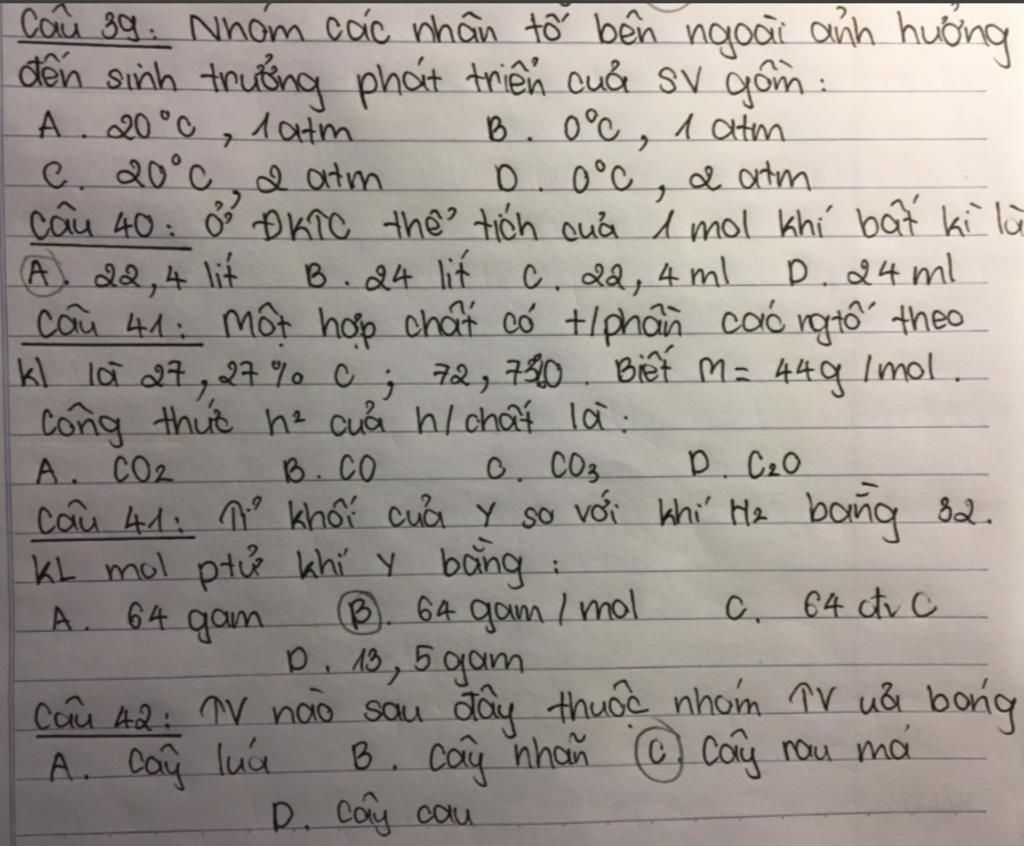 Câu 39: Nhóm các nhân tố bên ngoài ảnh hưởng
đến sinh trưởng phát triển của SV gồm:
A. 20°C, 1 atm B. 0°C, 1 atm
C. 20°C, 2 atm D. 0°C, 2 atm
Câu 40: Ở ĐKTC thể tích của 1 mol khí bất kì là
A. 22,4 lít B. 24 lít C. 22,4 ml D. 24 ml
Câu 41: Một hợp chất có t/phần các ngtố theo
kl là 27,27% C; 72,73%O. Biết M = 44g/mol.
Công thức h² của h/chất là:
A. CO2 B. CO C. CO3 D. C2O
Câu 41: Tỉ khối của Y so với khí H2 bằng 32.
KL mol ptử khí Y bằng:
A. 64 gam B. 64 gam/mol C. 64 đv C
D. 13,5 gam
Câu 42: TV nào sau đây thuộc nhóm TV ưa bóng
A. Cây lúa B. Cây nhãn C. Cây rau má
D. Cây cau